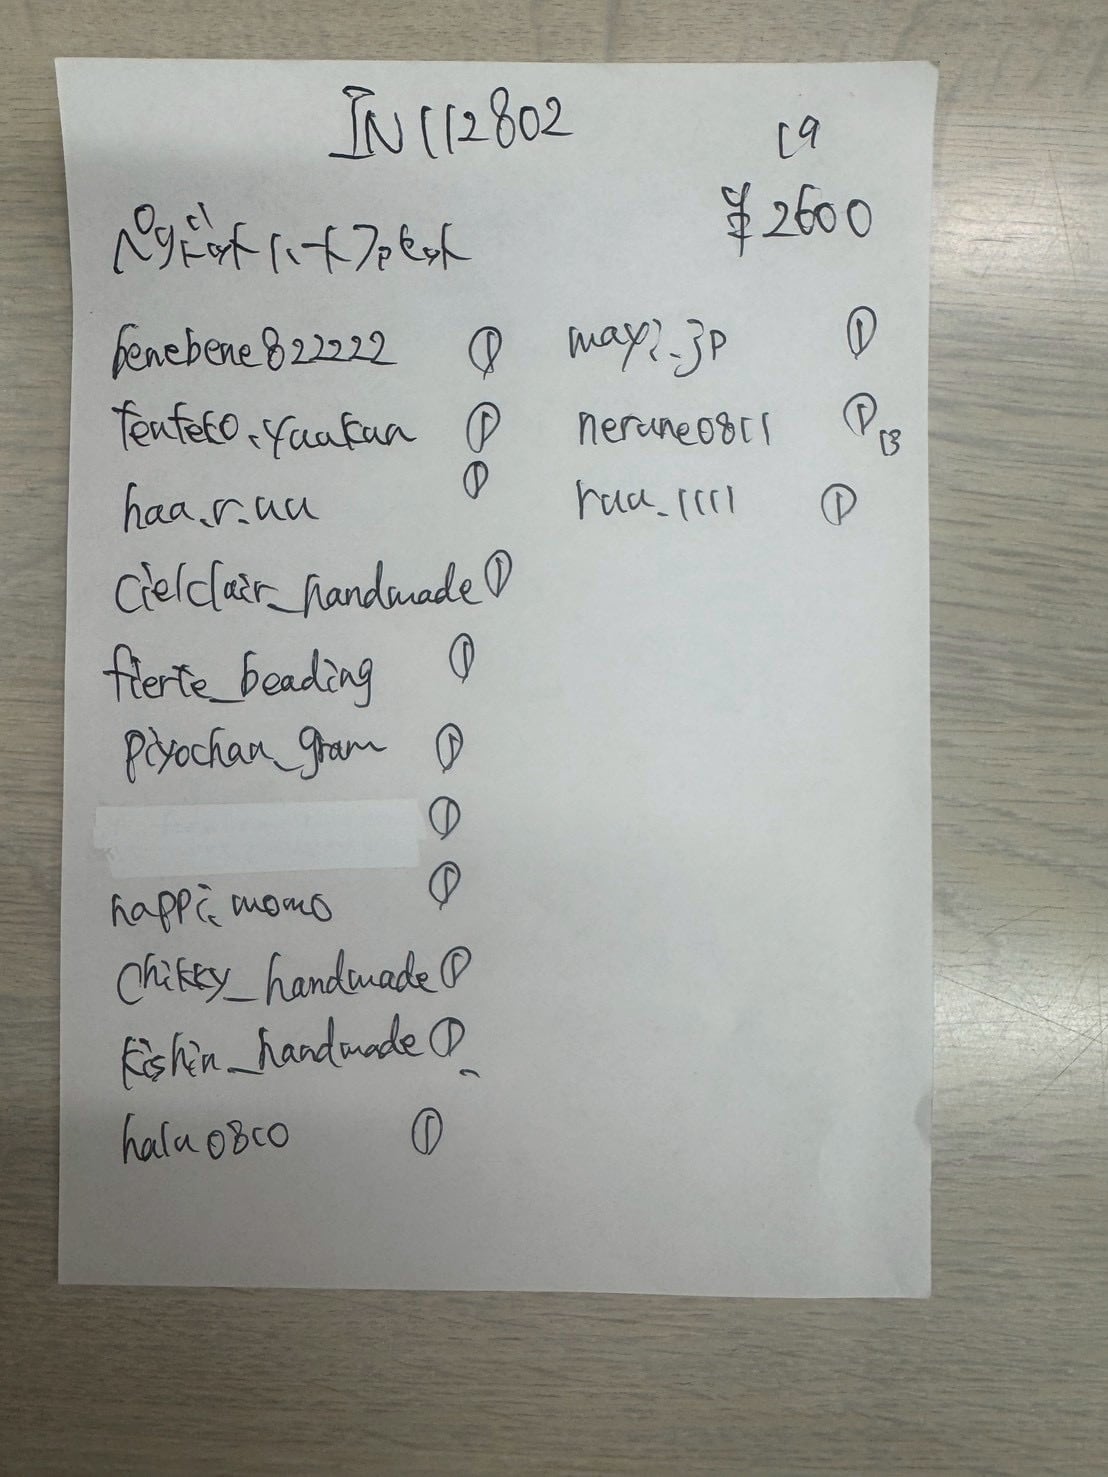 IN112802
19
¥2600
ペリドットハートフpセット
benebene822222 ①
tenteko.yaakan ①
haa.r.uu ①
cielclair_handmade ①
fierte_beading ①
piyochan_gram ①
①
happi.momo ①
chikky_handmade ①
kishin_handmade ①
halu0810 ①
may2.jp ①
nerune0811 ① 13
ruu.1111 ①